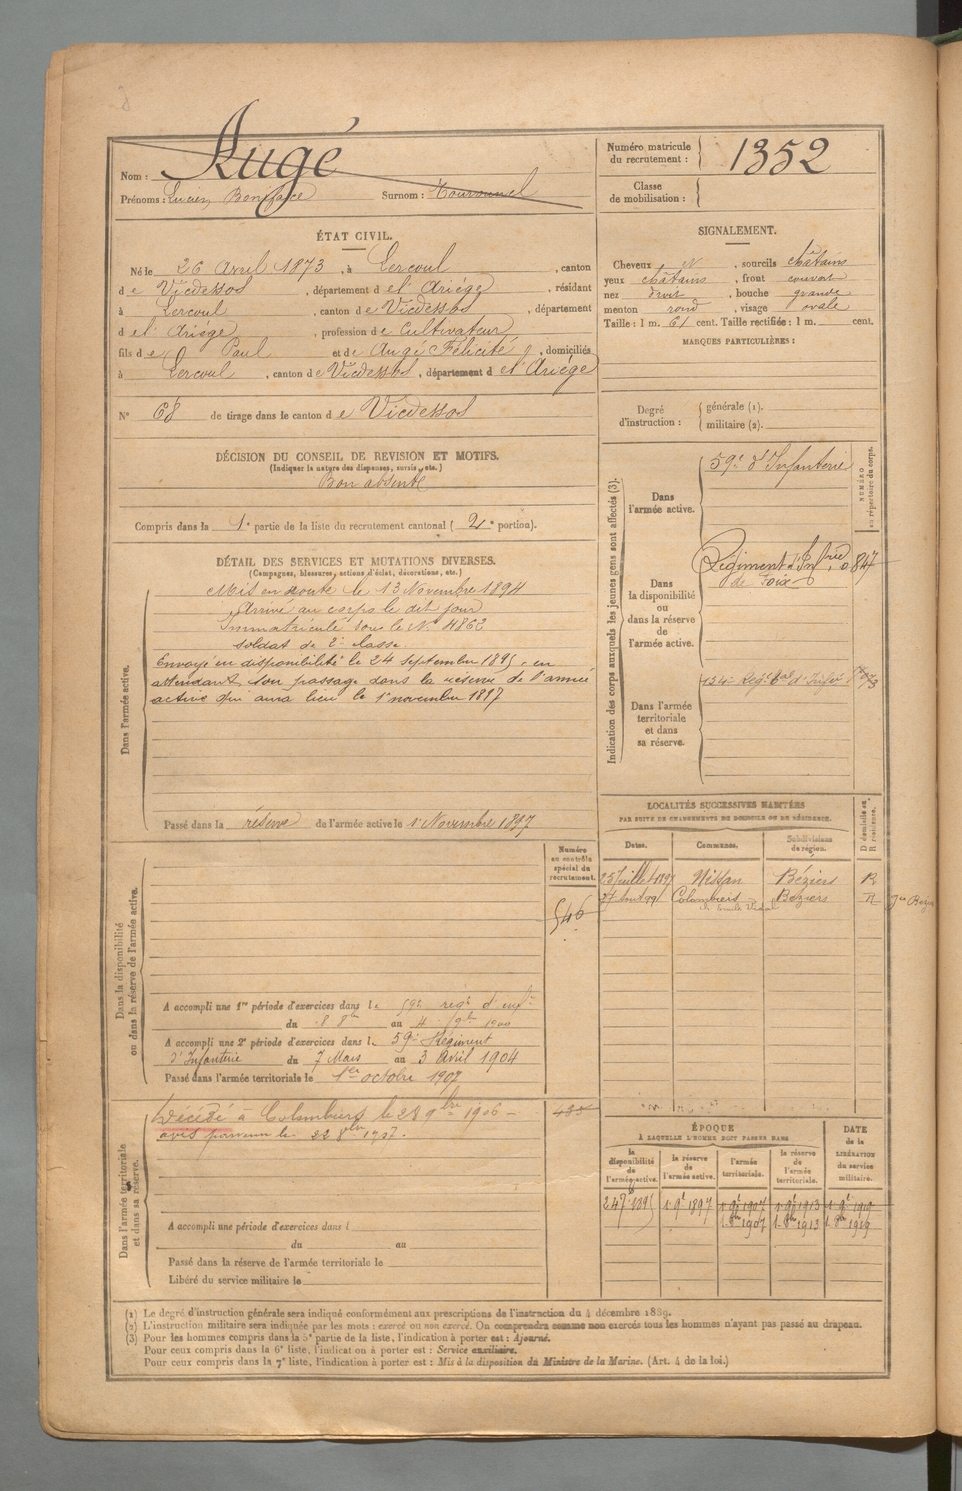 Nom : Augé
Prénoms : Lucien Boniface Surnom :
ÉTAT CIVIL.
Né le 26 Avril 1873, à Lercoul, canton
de Vicdessos, département de l'Ariège, résidant
à Lercoul, canton de Vicdessos, département
de l'Ariège, profession de Cultivateur,
fils de Paul et de Augé Félicité, domiciliés
à Lercoul, canton de Vicdessos, département de l'Ariège
N° 68 de tirage dans le canton de Vicdessos
DÉCISION DU CONSEIL DE REVISION ET MOTIFS.
(Indiquer la nature des dispenses, sursis, etc.)
Bon absent
Compris dans la 1e partie de la liste du recrutement cantonal (2e portion).
DÉTAIL DES SERVICES ET MUTATIONS DIVERSES.
(Campagnes, blessures, actions d'éclat, décorations, etc.)
Dans l'armée active.
Mis en route le 13 Novembre 1894
Arrivé au corps le dit jour
Immatriculé sous le N° 4862
soldat de 2e classe.
Envoyé en disponibilité le 24 septembre 1895, en
attendant son passage dans la réserve de l'armée
active qui aura lieu le 1er novembre 1897
Passé dans la réserve de l'armée active le 1er Novembre 1897
Dans la disponibilité
ou dans la réserve de l'armée active.
Numéro
au contrôle
spécial du
recrutement.
546
A accompli une 1re période d'exercices dans le 59e régt d'inf
du 8 8bre au 4 9bre 1900
A accompli une 2e période d'exercices dans le 59e Régiment
d'Infanterie du 7 Mars au 3 Avril 1904
Passé dans l'armée territoriale le 1er octobre 1907
Dans l'armée territoriale
et dans sa réserve.
Décédé à Colombiers le 28 9bre 1906 –
avis parvenu le 22 8bre 1907.
A accompli une période d'exercices dans l
du au
Passé dans la réserve de l'armée territoriale le
Libéré du service militaire le
Numéro matricule
du recrutement : 1352
Classe
de mobilisation :
SIGNALEMENT.
Cheveux N, sourcils châtains
yeux châtains, front couvert
nez droit, bouche grande
menton rond, visage ovale
Taille : 1 m. 61 cent. Taille rectifiée : 1 m. cent.
MARQUES PARTICULIÈRES :
Degré
d'instruction :
générale (1).
militaire (2).
Indication des corps auxquels les jeunes gens sont affectés (3).
NUMÉRO
au répertoire du corps.
Dans
l'armée active.
59e d'Infanterie
Dans
la disponibilité
ou
dans la réserve
de
l'armée active.
Régiment d'Infrie
de Foix
847
Dans l'armée
territoriale
et dans
sa réserve.
134e Régt
LOCALITÉS SUCCESSIVES HABITÉES
PAR SUITE DE CHANGEMENTS DE DOMICILE OU DE RÉSIDENCE.
D domicile ou
R résidence.
Dates. Communes. Subdivisions
de région.
25 Juillet 1897 Nissan Béziers R
Colombiers Béziers R
ÉPOQUE
À LAQUELLE L'HOMME DOIT PASSER DANS
DATE
de la
LIBÉRATION
du service
militaire.
la
disponibilité
de
l'armée active.
la réserve
de
l'armée active.
l'armée
territoriale.
la réserve
de
l'armée
territoriale.
24 7bre 1895 1. 9e 1897 1. 9e 1907 1. 9e 1913 1. 9e 1919
1. 8bre 1907 1. 8bre 1913 1. 8bre 1919
(1) Le degré d'instruction générale sera indiqué conformément aux prescriptions de l'instruction du 4 décembre 1889.
(2) L'instruction militaire sera indiquée par les mots : exercé ou non exercé. On comprendra comme non exercés tous les hommes n'ayant pas passé au drapeau.
(3) Pour les hommes compris dans la 5e partie de la liste, l'indication à porter est : Ajourné.
Pour ceux compris dans la 6e liste, l'indication à porter est : Service auxiliaire.
Pour ceux compris dans la 7e liste, l'indication à porter est : Mis à la disposition du Ministre de la Marine. (Art. 4 de la loi.)